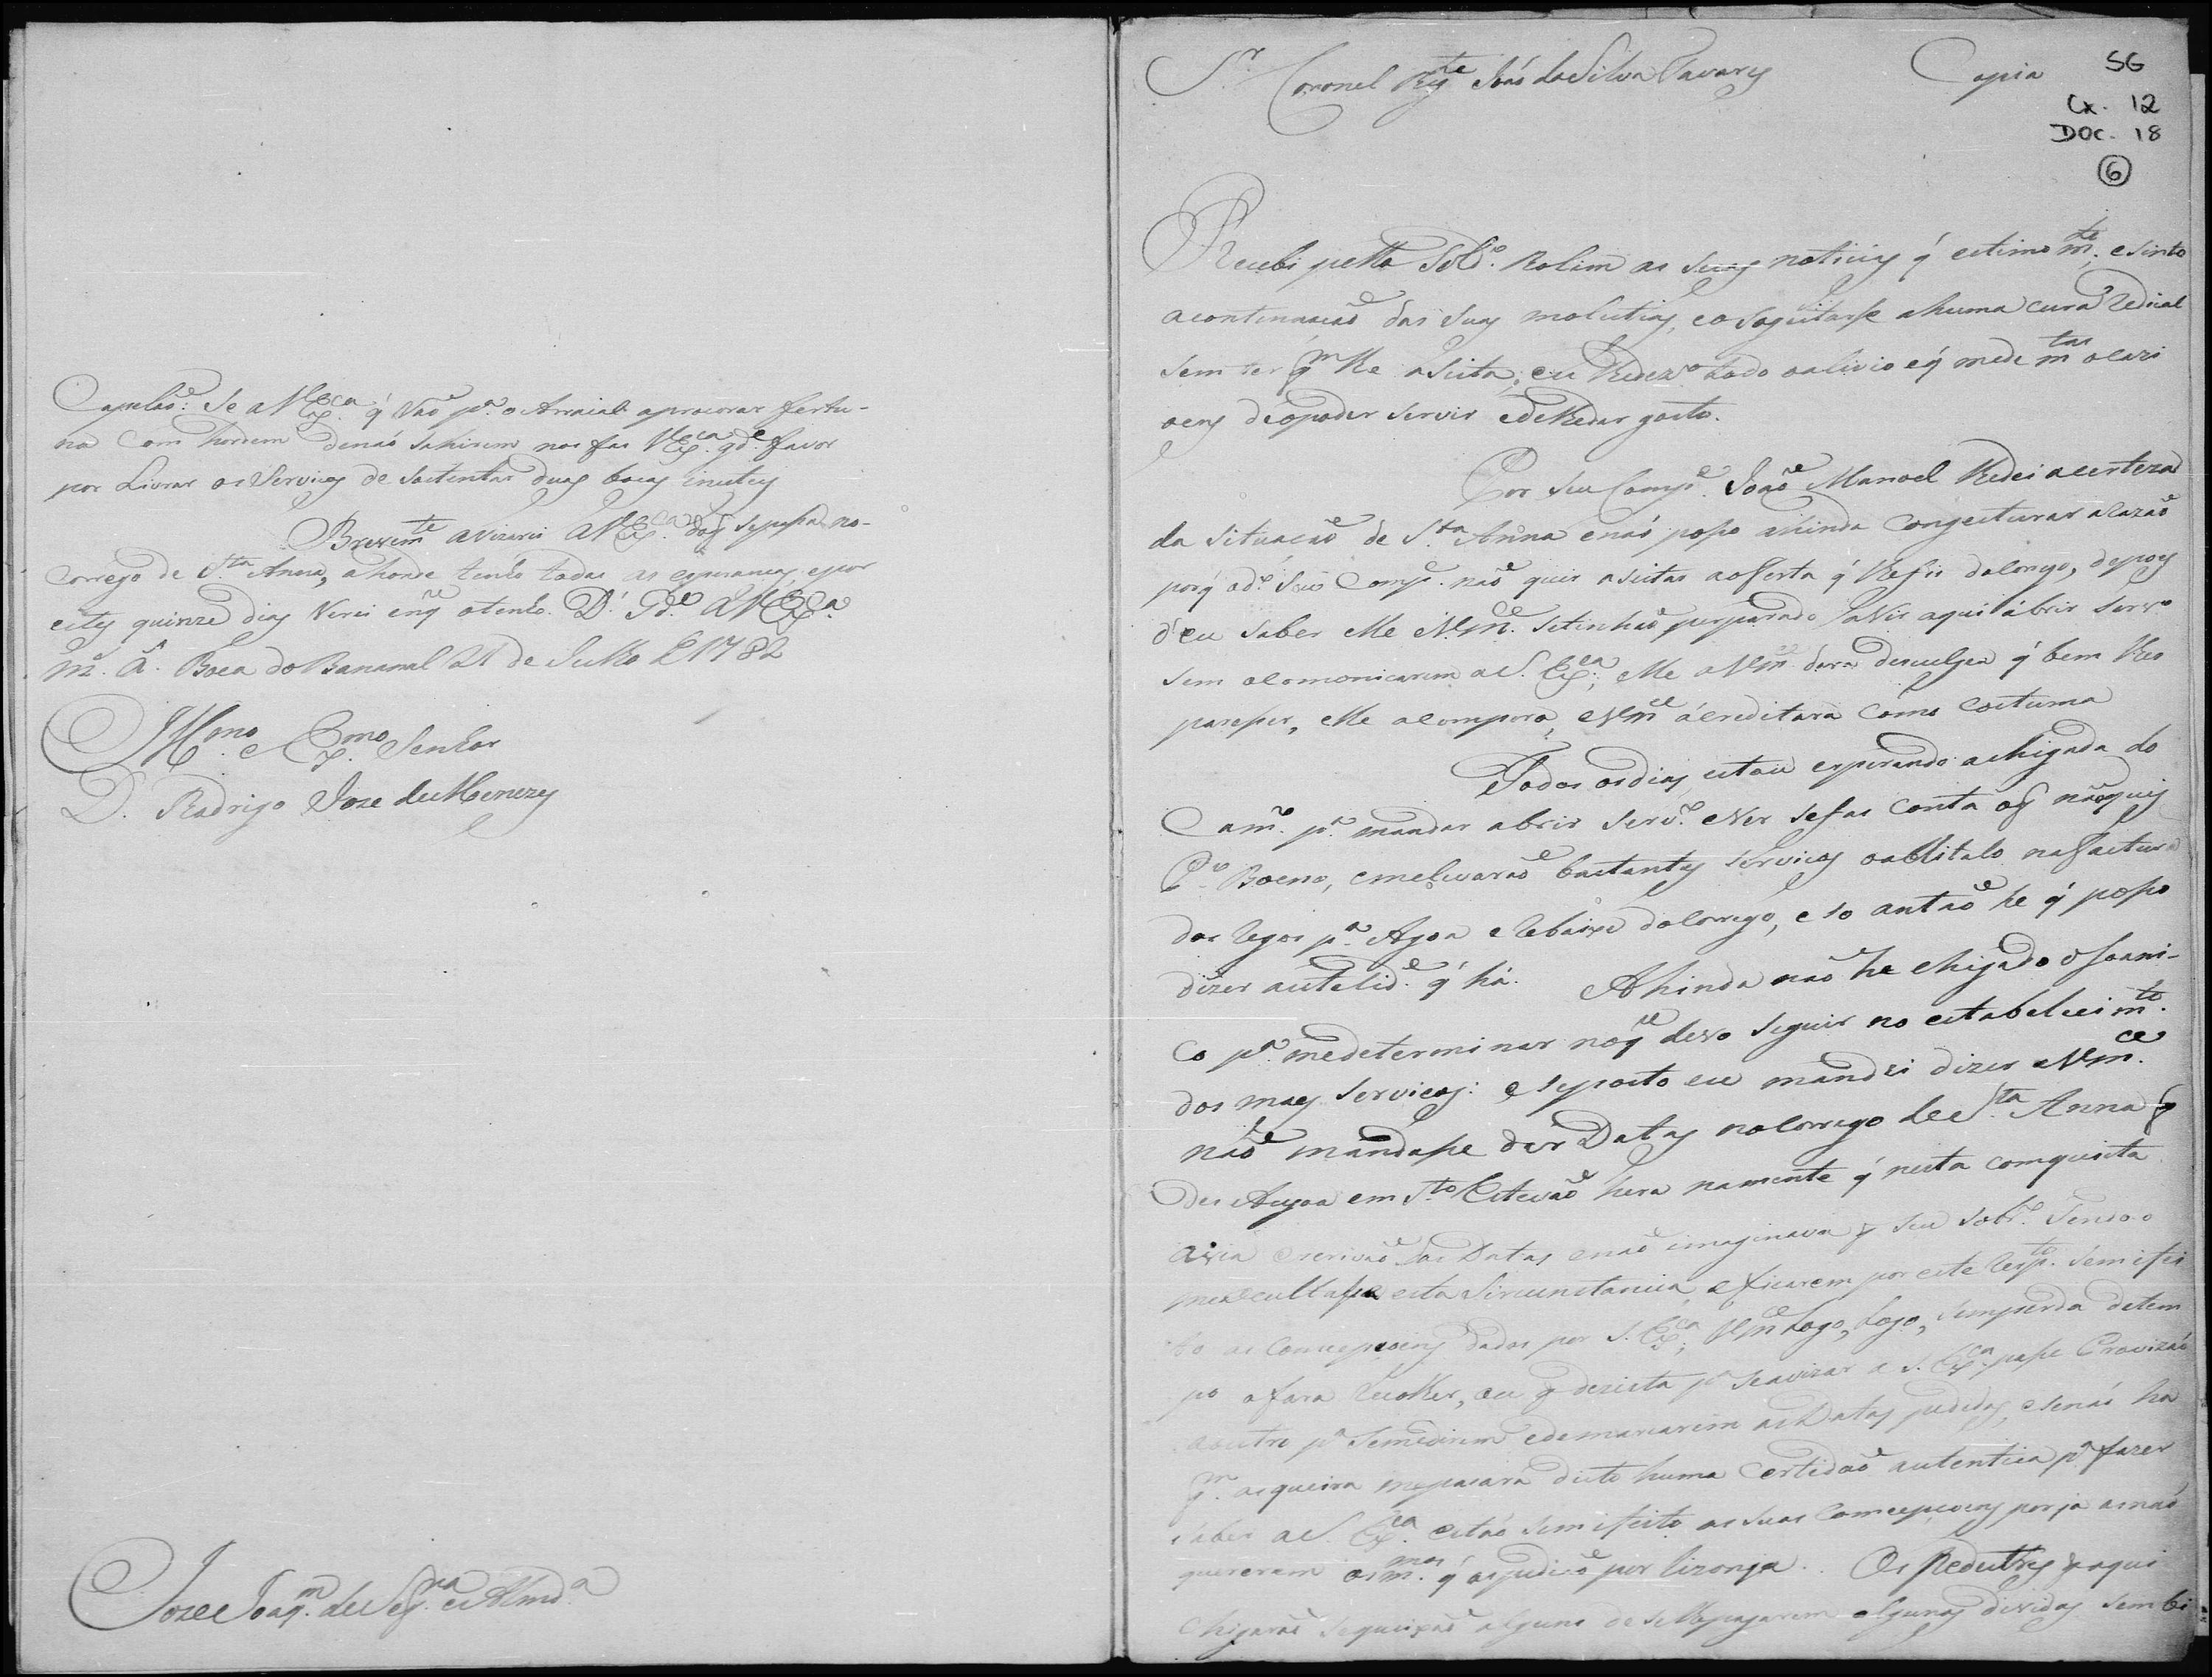 Capelaõ: Se a VExca. q́ Vaõ pa. o Arraial aprocorar fertu-
na Com hordem denaó sahirem nos fas VExca. gde. favor
por Livrar os Serviços de Sustentar duas bocas inuteis
Brevemte. avizarei a VExca. doq̃ sepasa no-
Corrego de Sta. Anna, ahonde tenho todas as esperancas, epor
estes quinze dias Verei enq̃ otenho. Ds. Gde. a VExca.
ms. as. Boca do Bananal 21 de Julho D 1782
Illmo. e Exmo. Senhor
D. Rodrigo Joze de Menezes
Joze Joaqm. de Seqra. e Almda.
Sr. Coronel Regte. Joaó da Silva Tavares
Copia
SG
Cx. 12
DOC. 18
6
Recebi pello Soldo. Rolim as suas noticias q́ estimo mte., e sinto
acontinuacaõ das suas molestias, eo sogeitarse ahuma cura Redical
sem ter qm. lhe asista, eu lhedezo. todo oalivio eq́ mede mtas. ocazi
oens deopoder servir ede lhedar gosto.
Por seu Compe. Joaõ Manoel lhedei acerteza
da situacaõ de Sta. Anna enaó poso ahinda Congeiturar arazaõ
porq́ odo. seu Compe. naõ quis aseitar aoferta q́ lhefis docorrego, depois
d'eu saber elle e Vmce. setinhaõ perparado pa. Vir aqui abrir servo.
sem ocomonicarem a S. Exca.; elle a Vmce. dara desculpa q́ bem lhes
pareser, elle acompora, e Vmce. ácreditara Como Costuma
Todos osdias estou esperando achigada do
Camo. pa. mandar abrir servo. e Ver sefas Conta oq̃ naõquis
Po. Boeno, emelevaraõ bastantes serviços oabilitalo nafactura
dos regos pa. Agoa e Rebaixe docorrego, e so antaõ he q́ poso
dizer autelide. q́ há. Ahinda naõ he chigado o Joani-
co pa. medeterminar noq̃ devo seguir no estabeleimto.
dos mais servicos: e suposto eu mandei dizer a Vmce.
naõ mandase dar Datas nocorrego de Sta. Anna q̃
des Agoa em Sto. Estevaõ hera namente q́ nesta comquista
avia escrivaõ das Datas enaõ imaginava q̃ seu sobro. sendo o
meocultase esta Sircunstancia, eficarem por este respto. sem efei
to as Concepcoens dadas por S. Exca.; Vmce. Logo, Logo, semperda detem
po ofara recolher, ou q̃ dezista pa. seavizar a S. Exca. pase Provizaó
aoutro pa. semedirem edemarcarem as Datas pedidas, esenaó ha
qm. asqueira mepasará disto huma Certidaõ autentica pa. fazer
saber a S. Exca. estáo sem efeito as suas Concepcoens por ja asnaó
quererem osmos. q́ aspediraõ por lizonja. Os Pedestres q̃ aqui
chigaraõ sequeixaõ alguns de selhepagarem algunas dividas sem bi